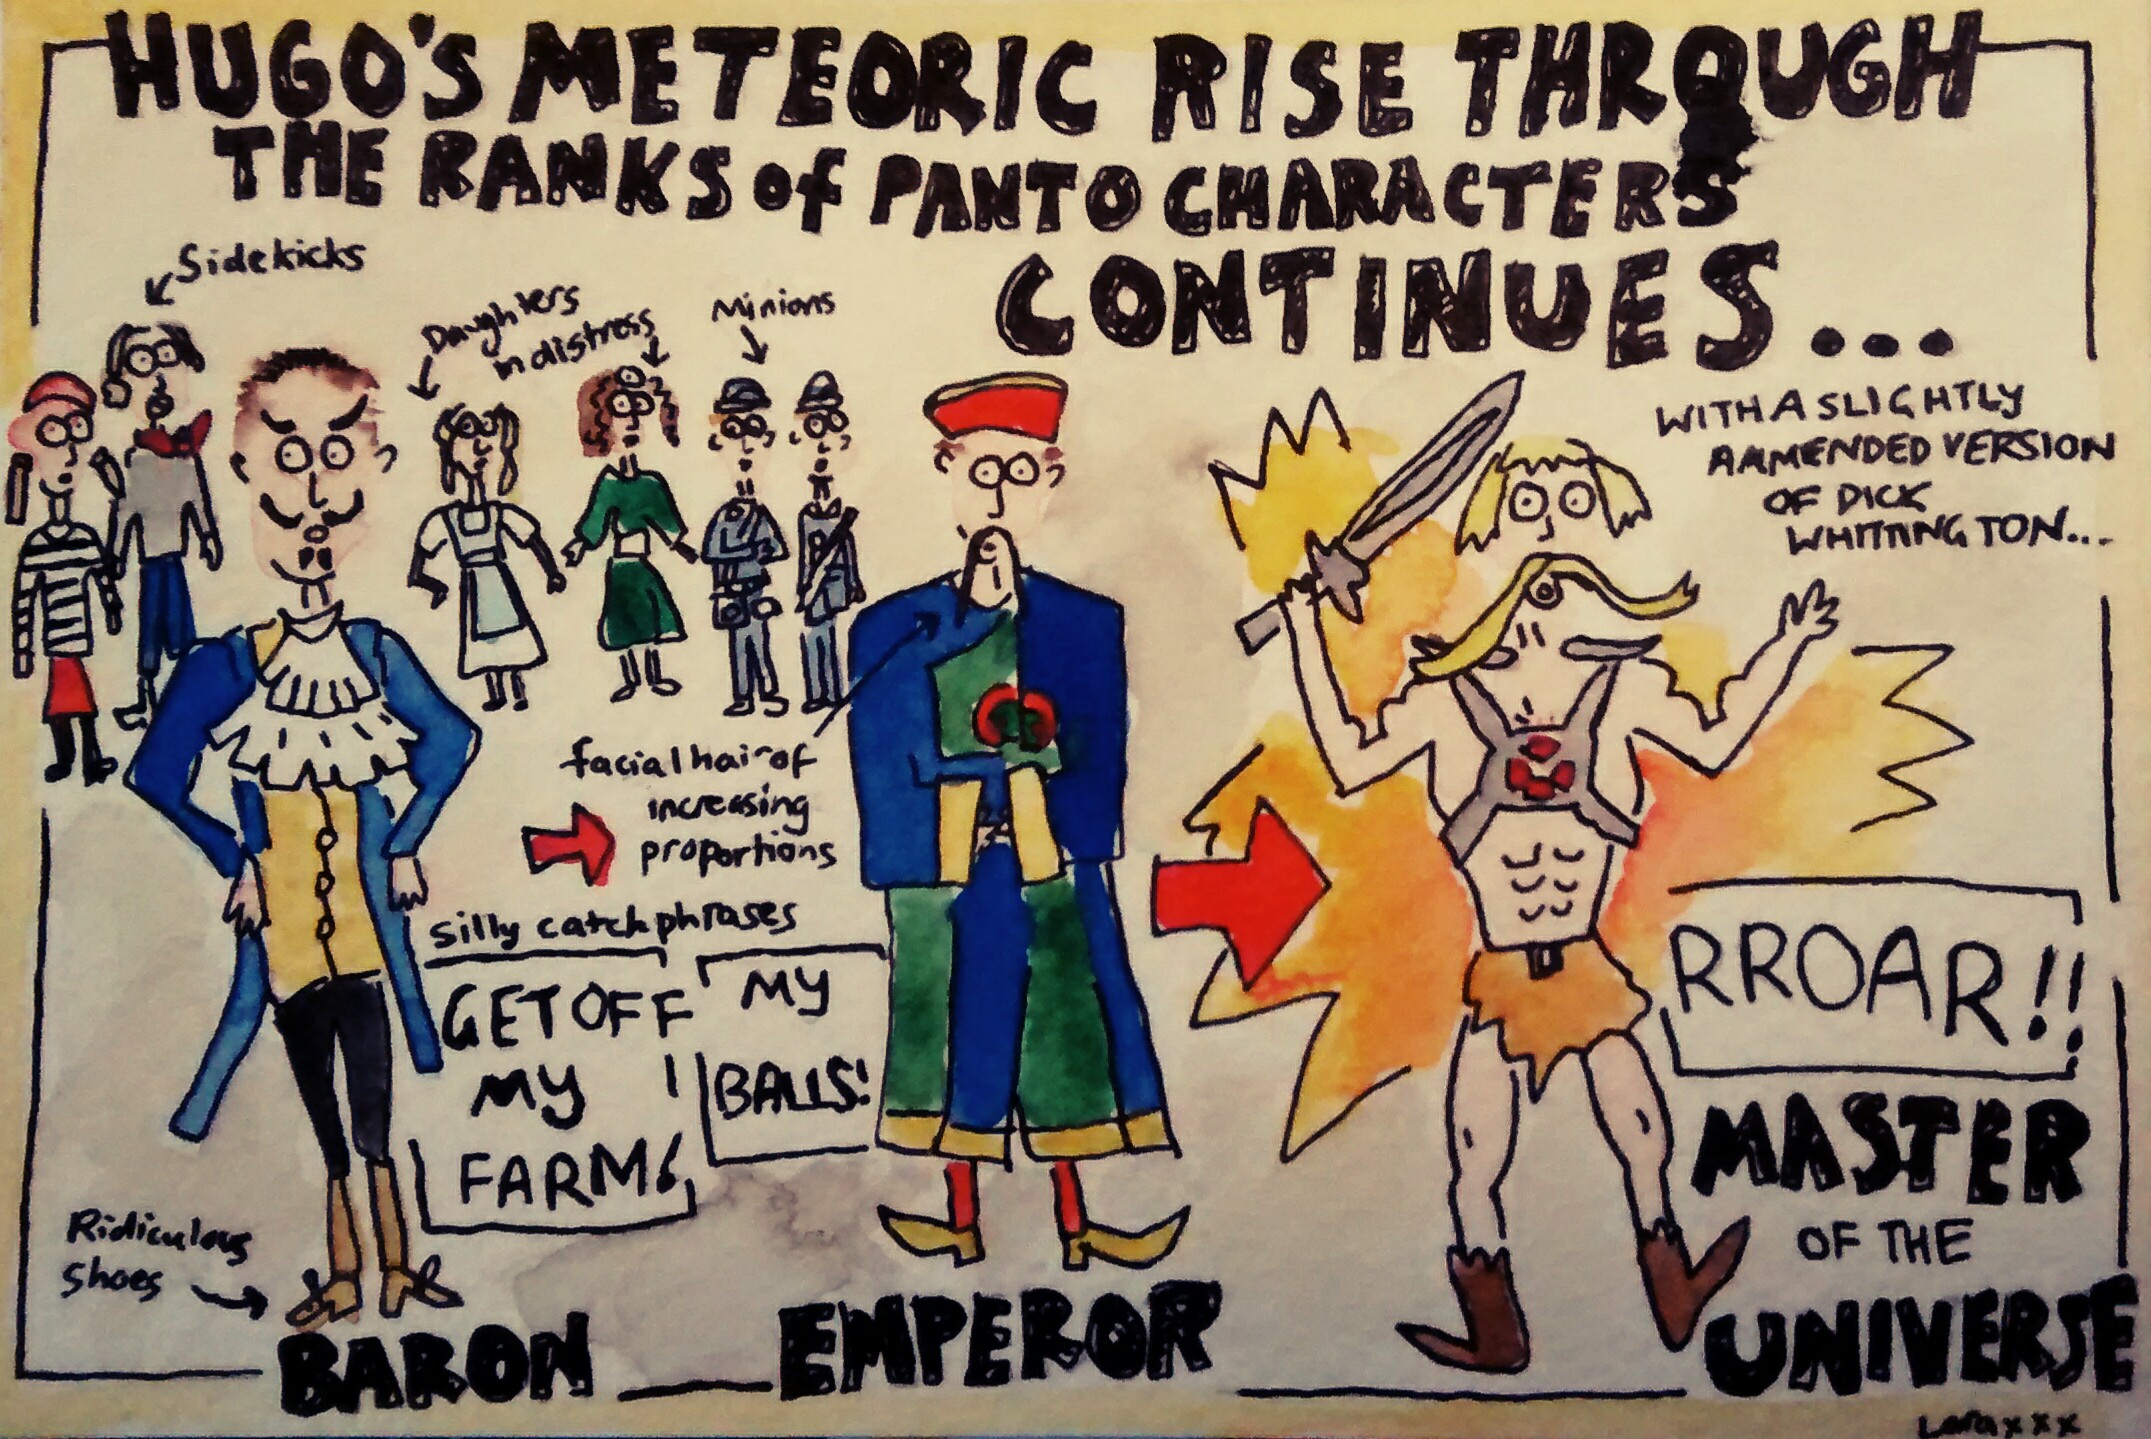 HUGO'S METEORIC RISE THROUGH
THE RANKS of PANTO CHARACTERS
CONTINUES...
Sidekicks
Daughters
in distress
Minions
WITH A SLIGHTLY
AMMENDED VERSION
OF DICK
WHITTINGTON...
facial hair of
increasing
proportions
silly catchphrases
GET OFF
MY
FARM!
MY
BALLS!
RROAR!!
Ridiculous
shoes
BARON
EMPEROR
MASTER
OF THE
UNIVERSE
Lara xxx